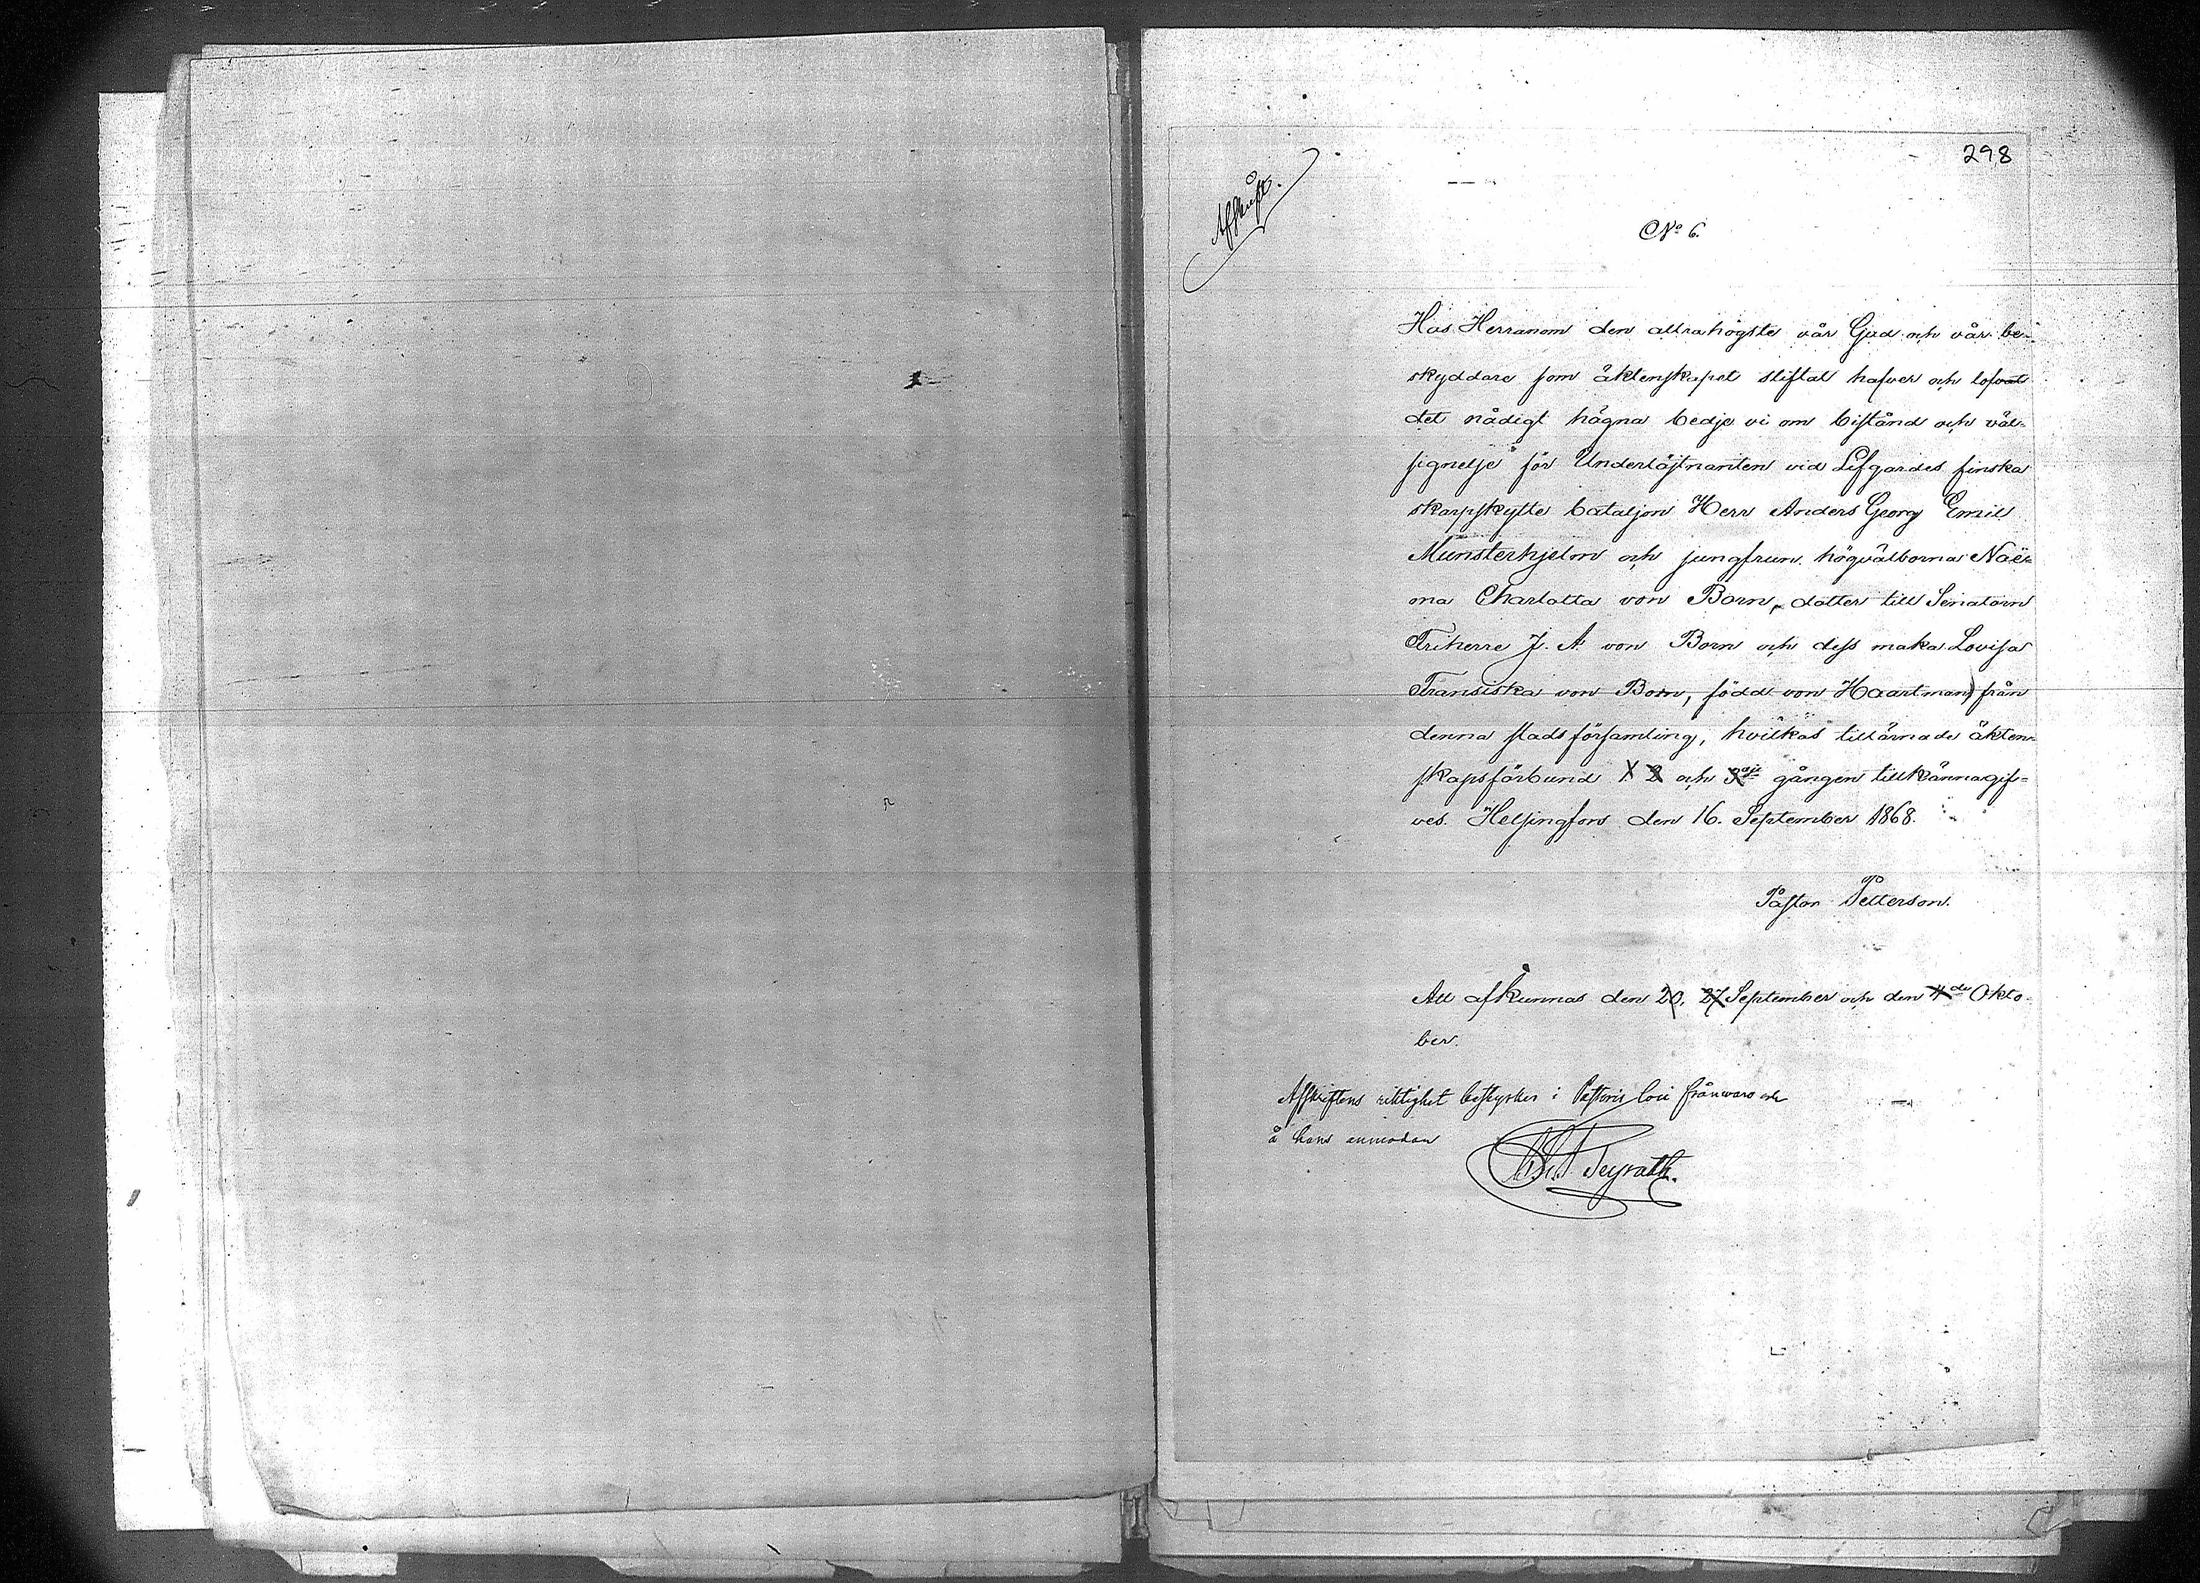 298
Afskrift.
No 6.
Hos Herranom den allrahögste vår Gud och vår be-
skyddare som äktenskapet stiftat hafver och lofvat
det nådigt hägna bedje vi om bistånd och väl-
signelse för Underlöjtnanten vid Lifgardes finska
skarpskytte bataljon Herr Anders Georg Emil
Munsterhjelm och jungfrun högvälborna Naë-
ma Charlotta von Born, dotter till Senatorn
Friherre J. A. von Born och dess maka Lovisa
Fransiska von Born, född von Haartman) från
denna stads församling, hvilkas tillärnade äkten-
skapsförbund 1 2 och 3dje gången tillkännagif-
ves. Helsingfors den 16. September 1868.
Pastor Petterson.
Att afkunnas den 20, 27 September och den 4de Okto-
ber.
Afskriftens riktighet bestyrker i Pastoris loci frånvaro och
å hans anmodan
Teyrath.